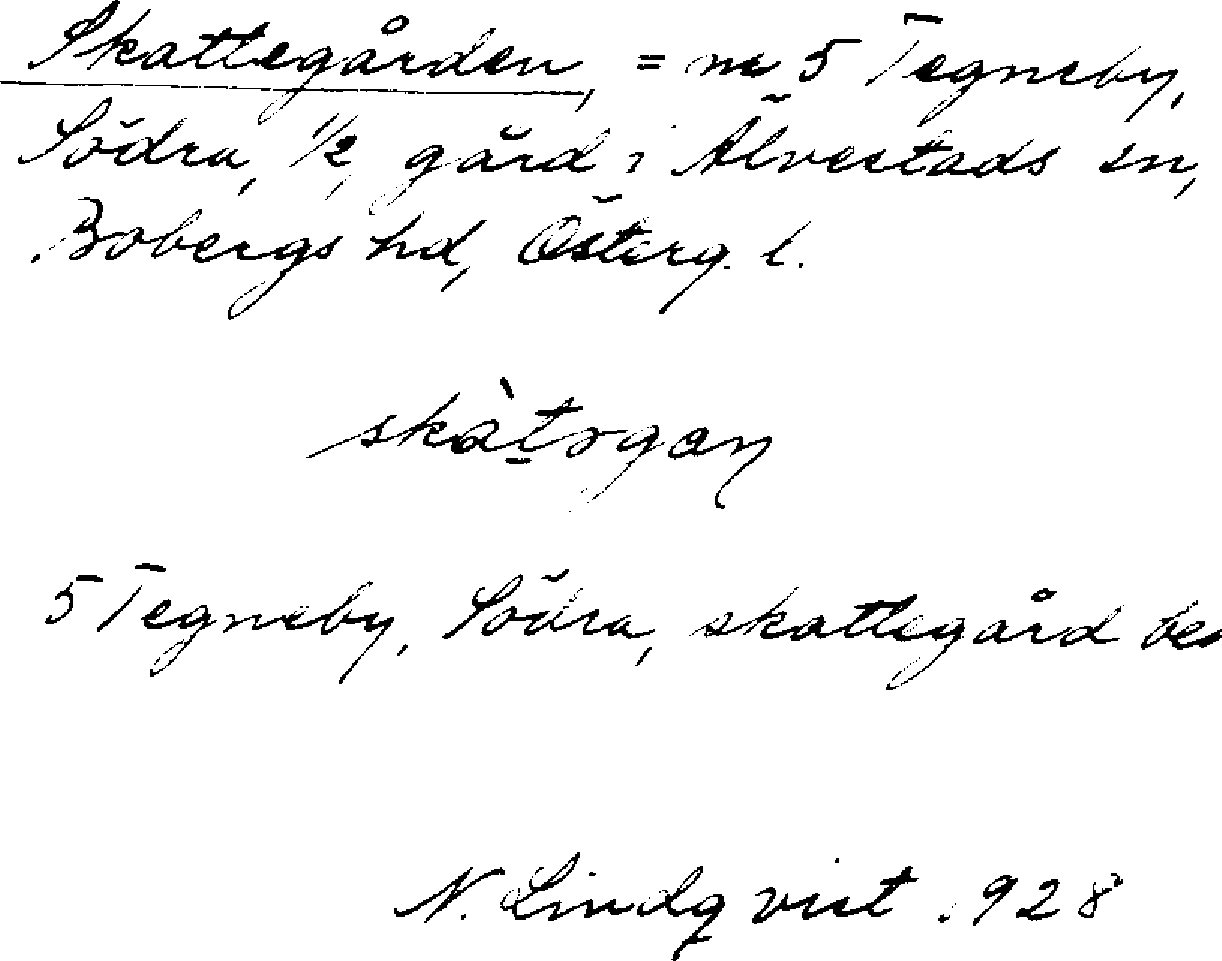 Skattegården, = nr 5 Tegneby,
Södra, 1/2, gård i Älvestads sn,
Bobergs hd, Österg. l.
skàtərgan
5 Tegneby, Södra, skattegård
N. Lindqvist 1928